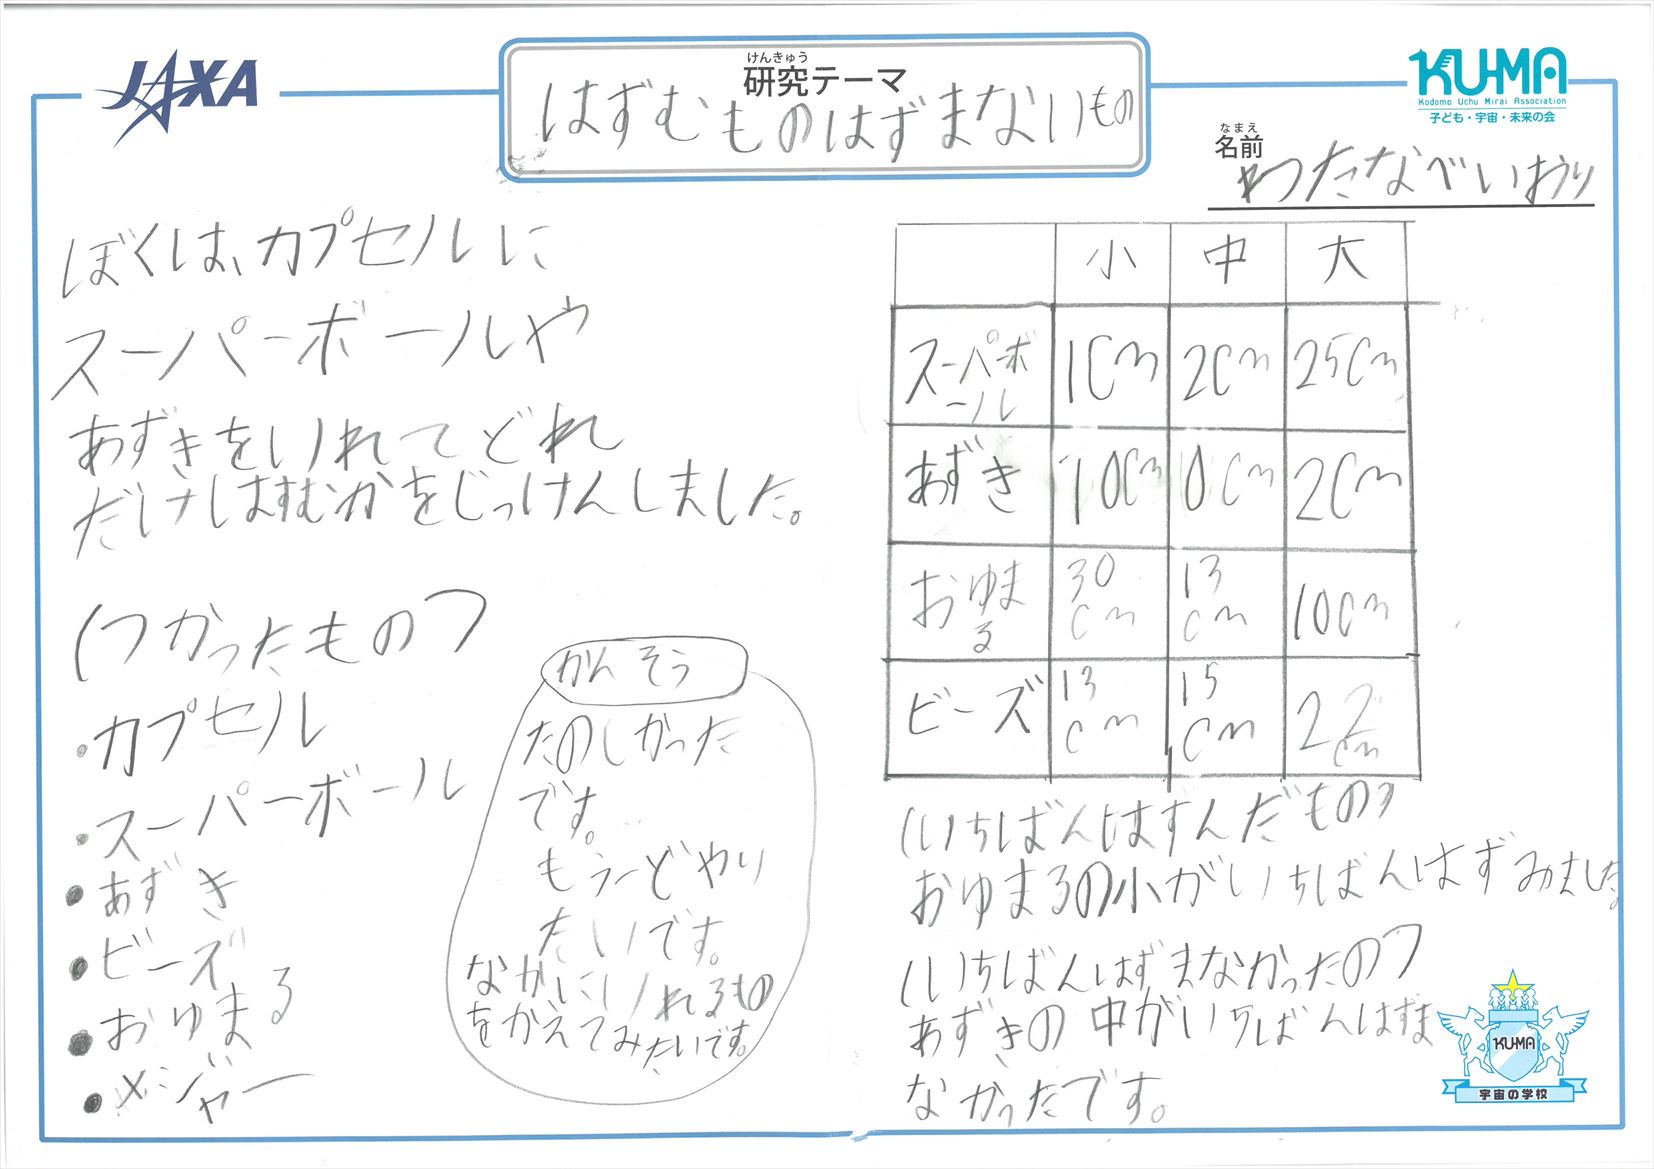 JAXA
けんきゅう
研究テーマ
はずむものはずまないもの
KU-MA
Kodomo Uchu Mirai Association
子ども・宇宙・未来の会
なまえ
名前
わたなべいおり
ぼくは、カプセルに
スーパーボールや
あずきをいれてどれ
だけはずむかをじっけんしました。
(つかったもの)
・カプセル
・スーパーボール
・あずき
・ビーズ
・おゆまる
・メジャー
かんそう
たのしかった
です。
もう一どやり
たいです。
なかにいれるもの
をかえてみたいです。
小 中 大
スーパーボール 1cm 2cm 25cm
あずき 10cm 0cm 2cm
おゆまる 30cm 13cm 10cm
ビーズ 13cm 15cm 22cm
(いちばんはずんだもの)
おゆまるの小がいちばんはずみました。
(いちばんはずまなかったの)
あずきの中がいちばんはずま
なかったです。
KU-MA
宇宙の学校